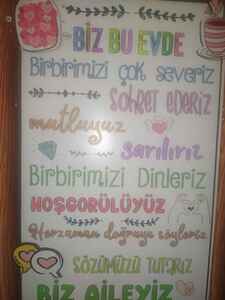 BİZ BU EVDE
Birbirimizi çok severiz
sohbet ederiz
mutluyuz
sarılırız
Birbirimizi Dinleriz
HOŞGÖRÜLÜYÜZ
Herzaman doğruyu söyleriz
SÖZÜMÜZÜ TUTARIZ
BİZ AİLEYİZ